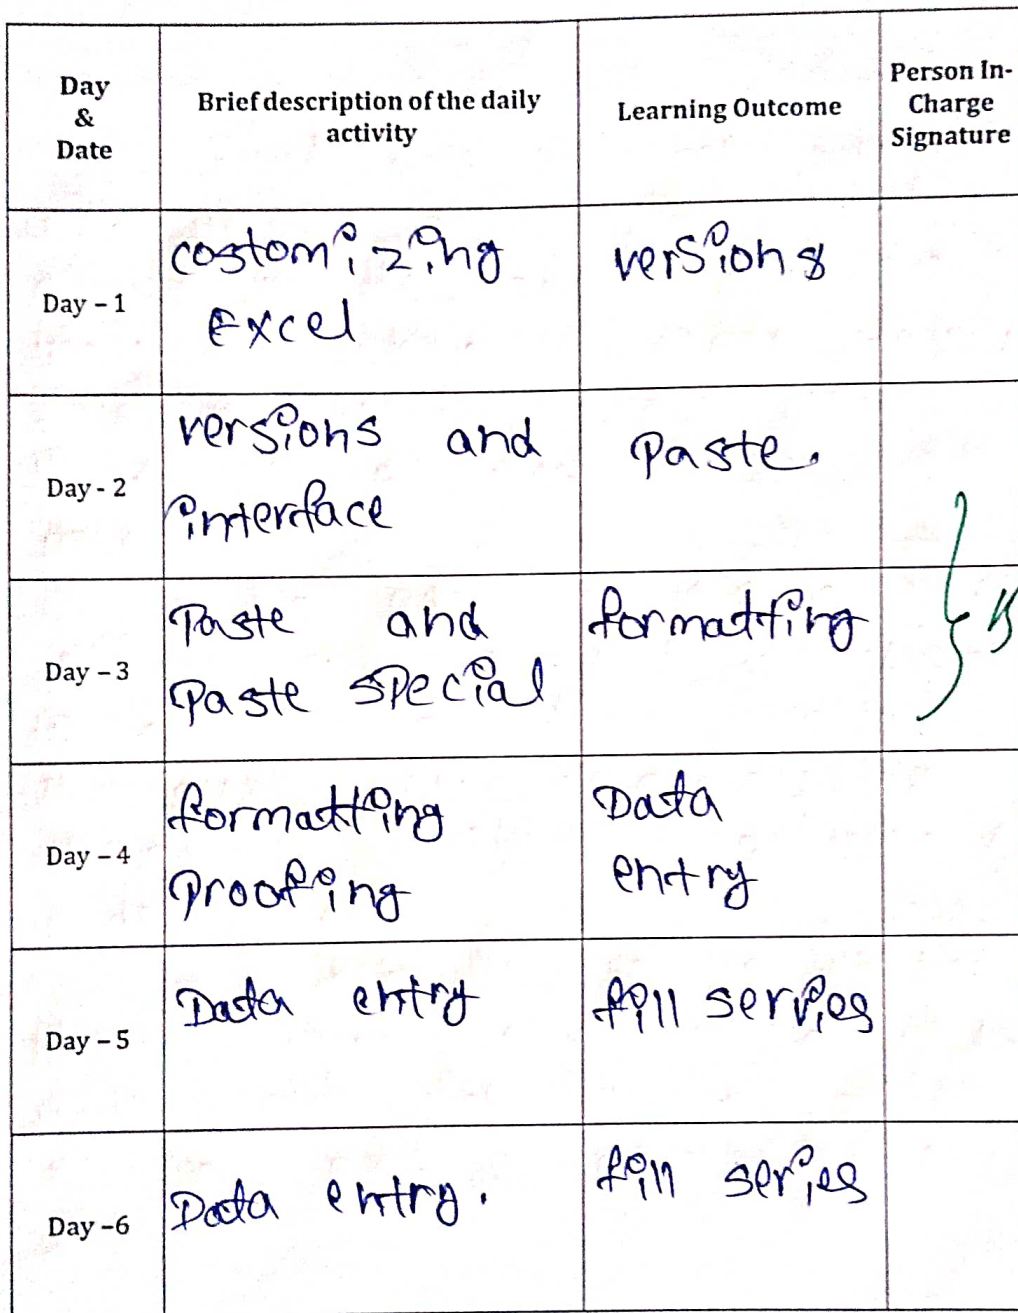 Day
&
Date
Brief description of the daily
activity
Learning Outcome
Person In-
Charge
Signature
Day – 1
costomizing
Excel
versions
Day - 2
versions and
interface
Paste.
Day – 3
Paste and
Paste special
formatting
Day – 4
formatting
Proofing
Data
entry
Day – 5
Data entry
fill servies
Day –6
Data entry.
fill series